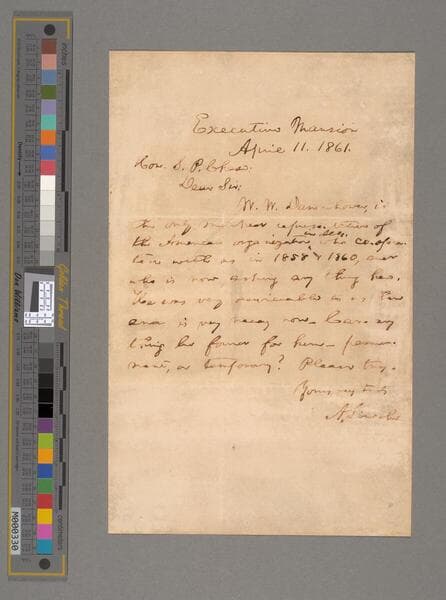 Executive Mansion
April 11. 1861.
Hon. S. P. Chase.
Dear Sir:
W. W. Danenhower, is
the only one
of the American organization who co-opera-
in Ills.
ted with us in 1858 & 1860, and
who is now asking any thing here.
He was very serviceable to us then
and is very needy now. Can any
thing be found for him— perma-
nent, or temporary? Please try.
Yours, very truly
A. Lincoln
inches
centimeters
Golden Thread
Don Williams
M000330